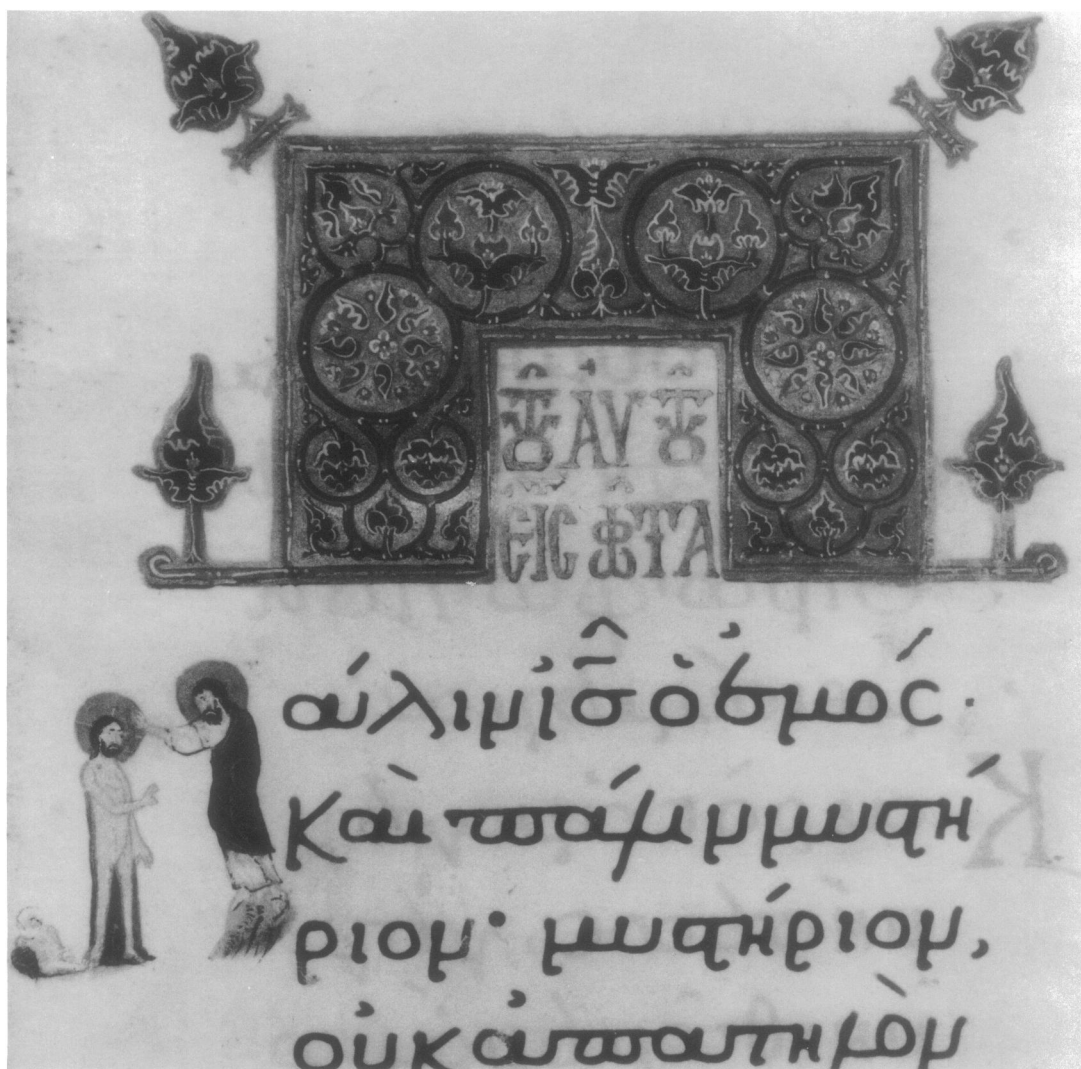 ΤΟΥ ΑΥΤΟΥ
ΕΙС ΦѠΤΑ
Πάλιν ἰ̅ς̅ ὁ ἐμός·
Καὶ πάλιν μυστή
ριον· μυστήριον,
οὐκ ἀπατηλὸν